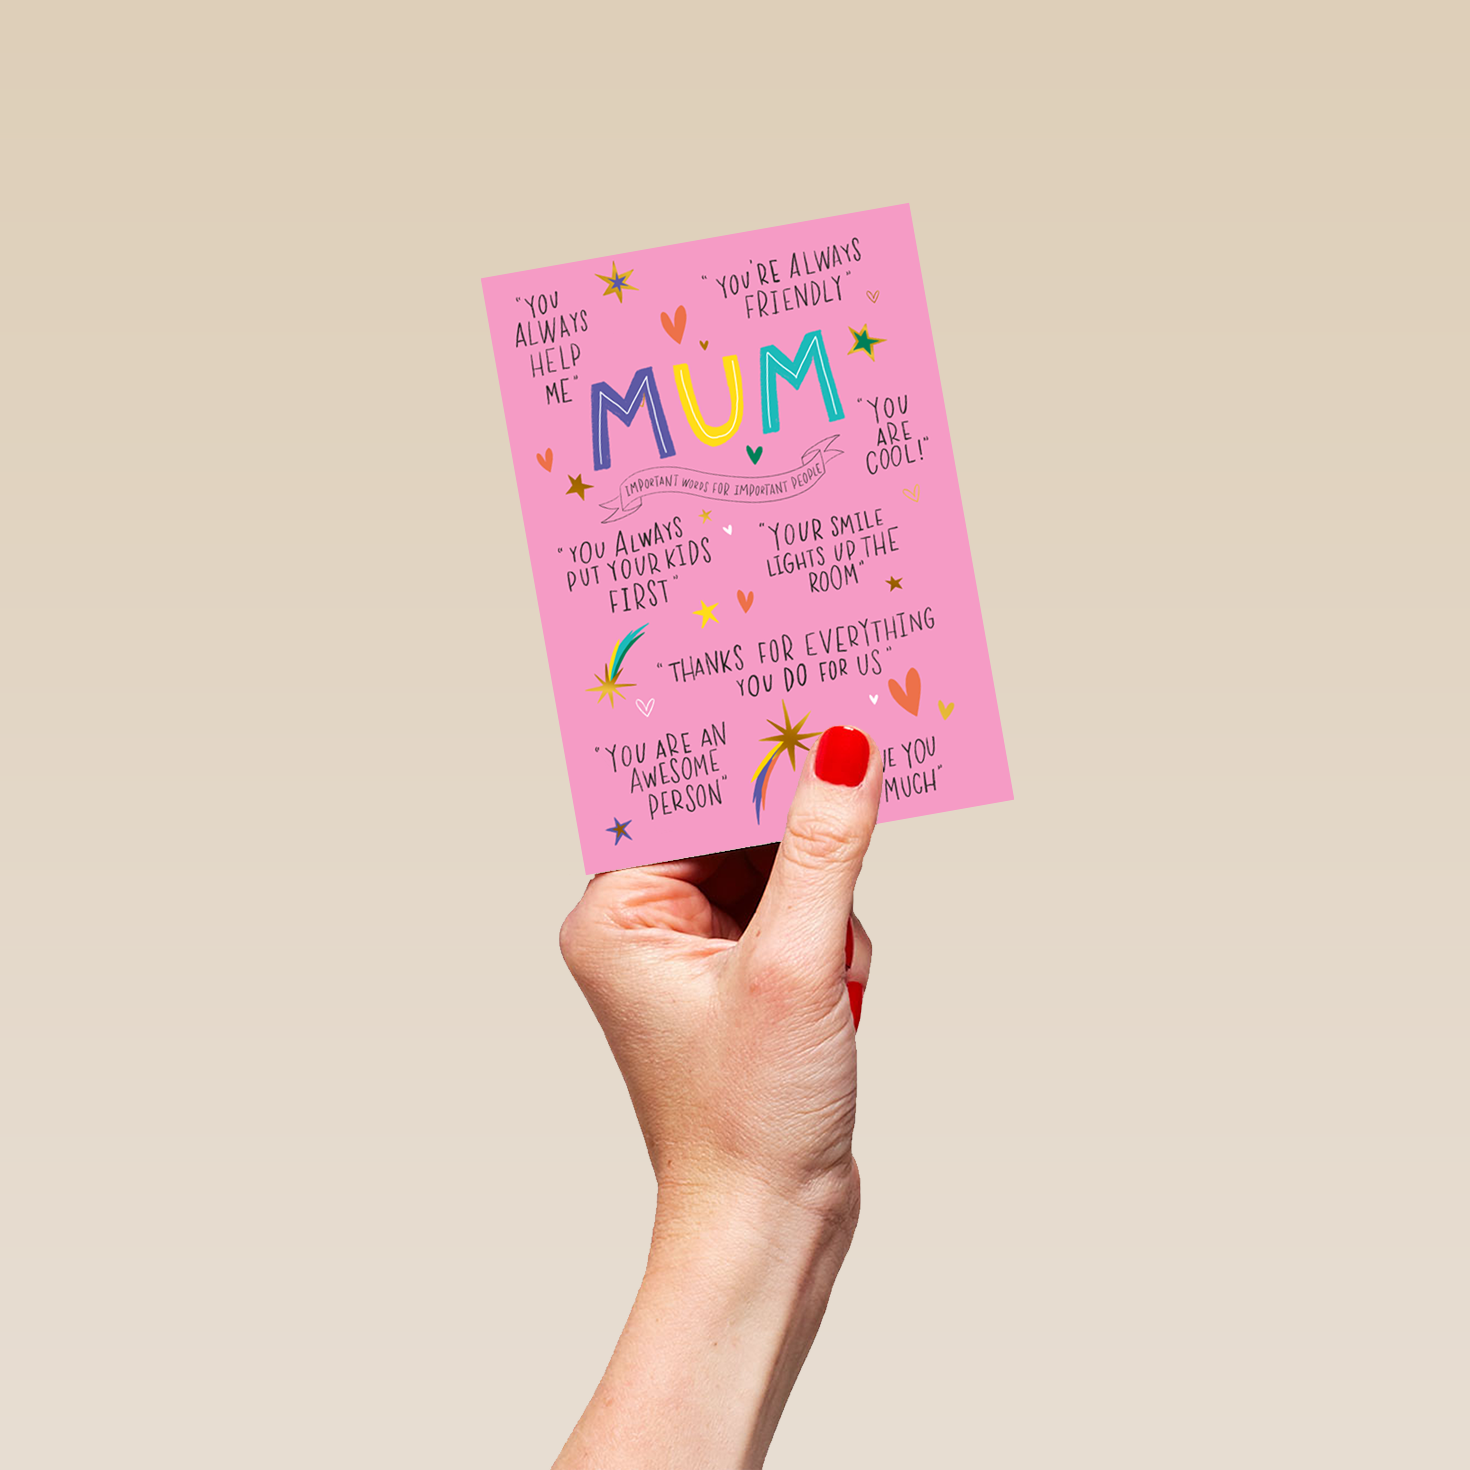 "YOU
ALWAYS
HELP
ME"
"YOU'RE ALWAYS
FRIENDLY"
MUM
IMPORTANT WORDS FOR IMPORTANT PEOPLE
"YOU
ARE
COOL!"
"YOU ALWAYS
PUT YOUR KIDS
FIRST"
"YOUR SMILE
LIGHTS UP THE
ROOM"
"THANKS FOR EVERYTHING
YOU DO FOR US"
"YOU ARE AN
AWESOME
PERSON"
YOU
MUCH"